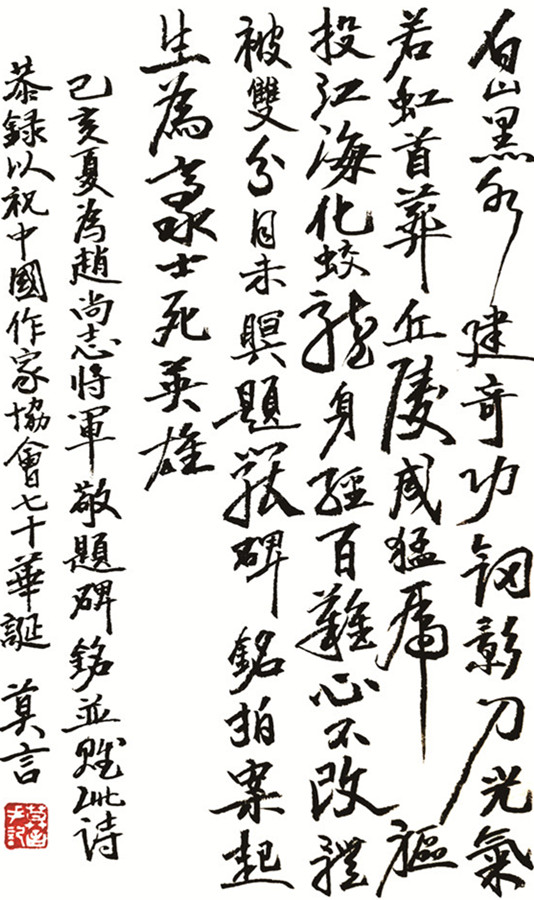 白山黑水建奇功釼影刀光氣
若虹首葬丘陵成猛虎軀
投江海化蛟龍身經百難心不改體
被雙分目未瞑題罷碑銘拍案起
生為豪士死英雄
己亥夏為趙尚志將軍敬題碑銘並賦此詩
恭録以祝中國作家協會七十華誕 莫言